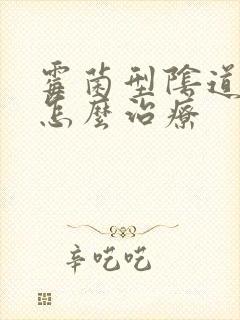 霉菌型陰道
怎麼治療
辛吃吃